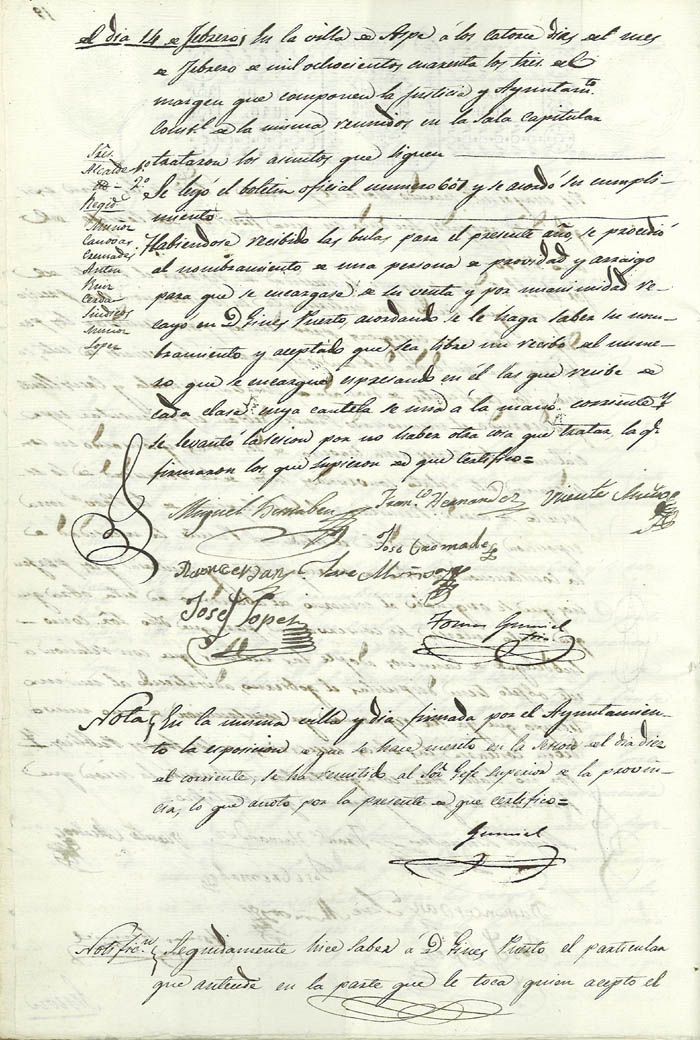 el dia 14 de febrero, En la villa de Aspe á los catorce dias del mes
de febrero de mil ochocientos cuarenta los Sres. del
margen que componen la Justicia y Ayuntamto.
Constl. de la misma reunidos en la Sala Capitular
trataron los asuntos que siguen
Sres.
Alcalde 1º
2º
Regid.
Muñoz
Canovas
Cremades
Anton
Ruiz
Cerdan
Sindicos
Muñoz
Lopez
Se leyó el boletin oficial numero 601 y se acordó su cumpli-
miento
Habiendose recibido las bulas para el presente año, se procedió
al nombramiento de una persona de providad y arraigo
para que se encargase de su venta y por unanimidad re-
cayó en D. Gines Puerto, acordando se le haga saber su nom-
bramiento y aceptado que sea libre un recibo del nume-
ro que se encargue espresando en él las que recibe de
cada clase cuya cautela se una á la mano corriente y
se levantó la sesion por no haber otra cosa que tratar, la qe.
firmaron los que supieron de que certifico=
Miguel
Franco. Hernandez
Vicente Muñoz
Jose Cremades
Jose Muñoz
José Lopez
Tomas Gumiel
srio
Nota, En la misma villa y dia firmada por el Ayuntamien-
to la esposicion de que se hace merito en la Sesion del dia diez
del corriente, se ha remitido al Sor. Gefe Superior de la provin-
cia, lo que anoto por la presente de que certifico=
Gumiel
Notificn. Seguidamente hice saber á D. Gines Puerto el particular
que antecede en la parte que le toca quien acepto el